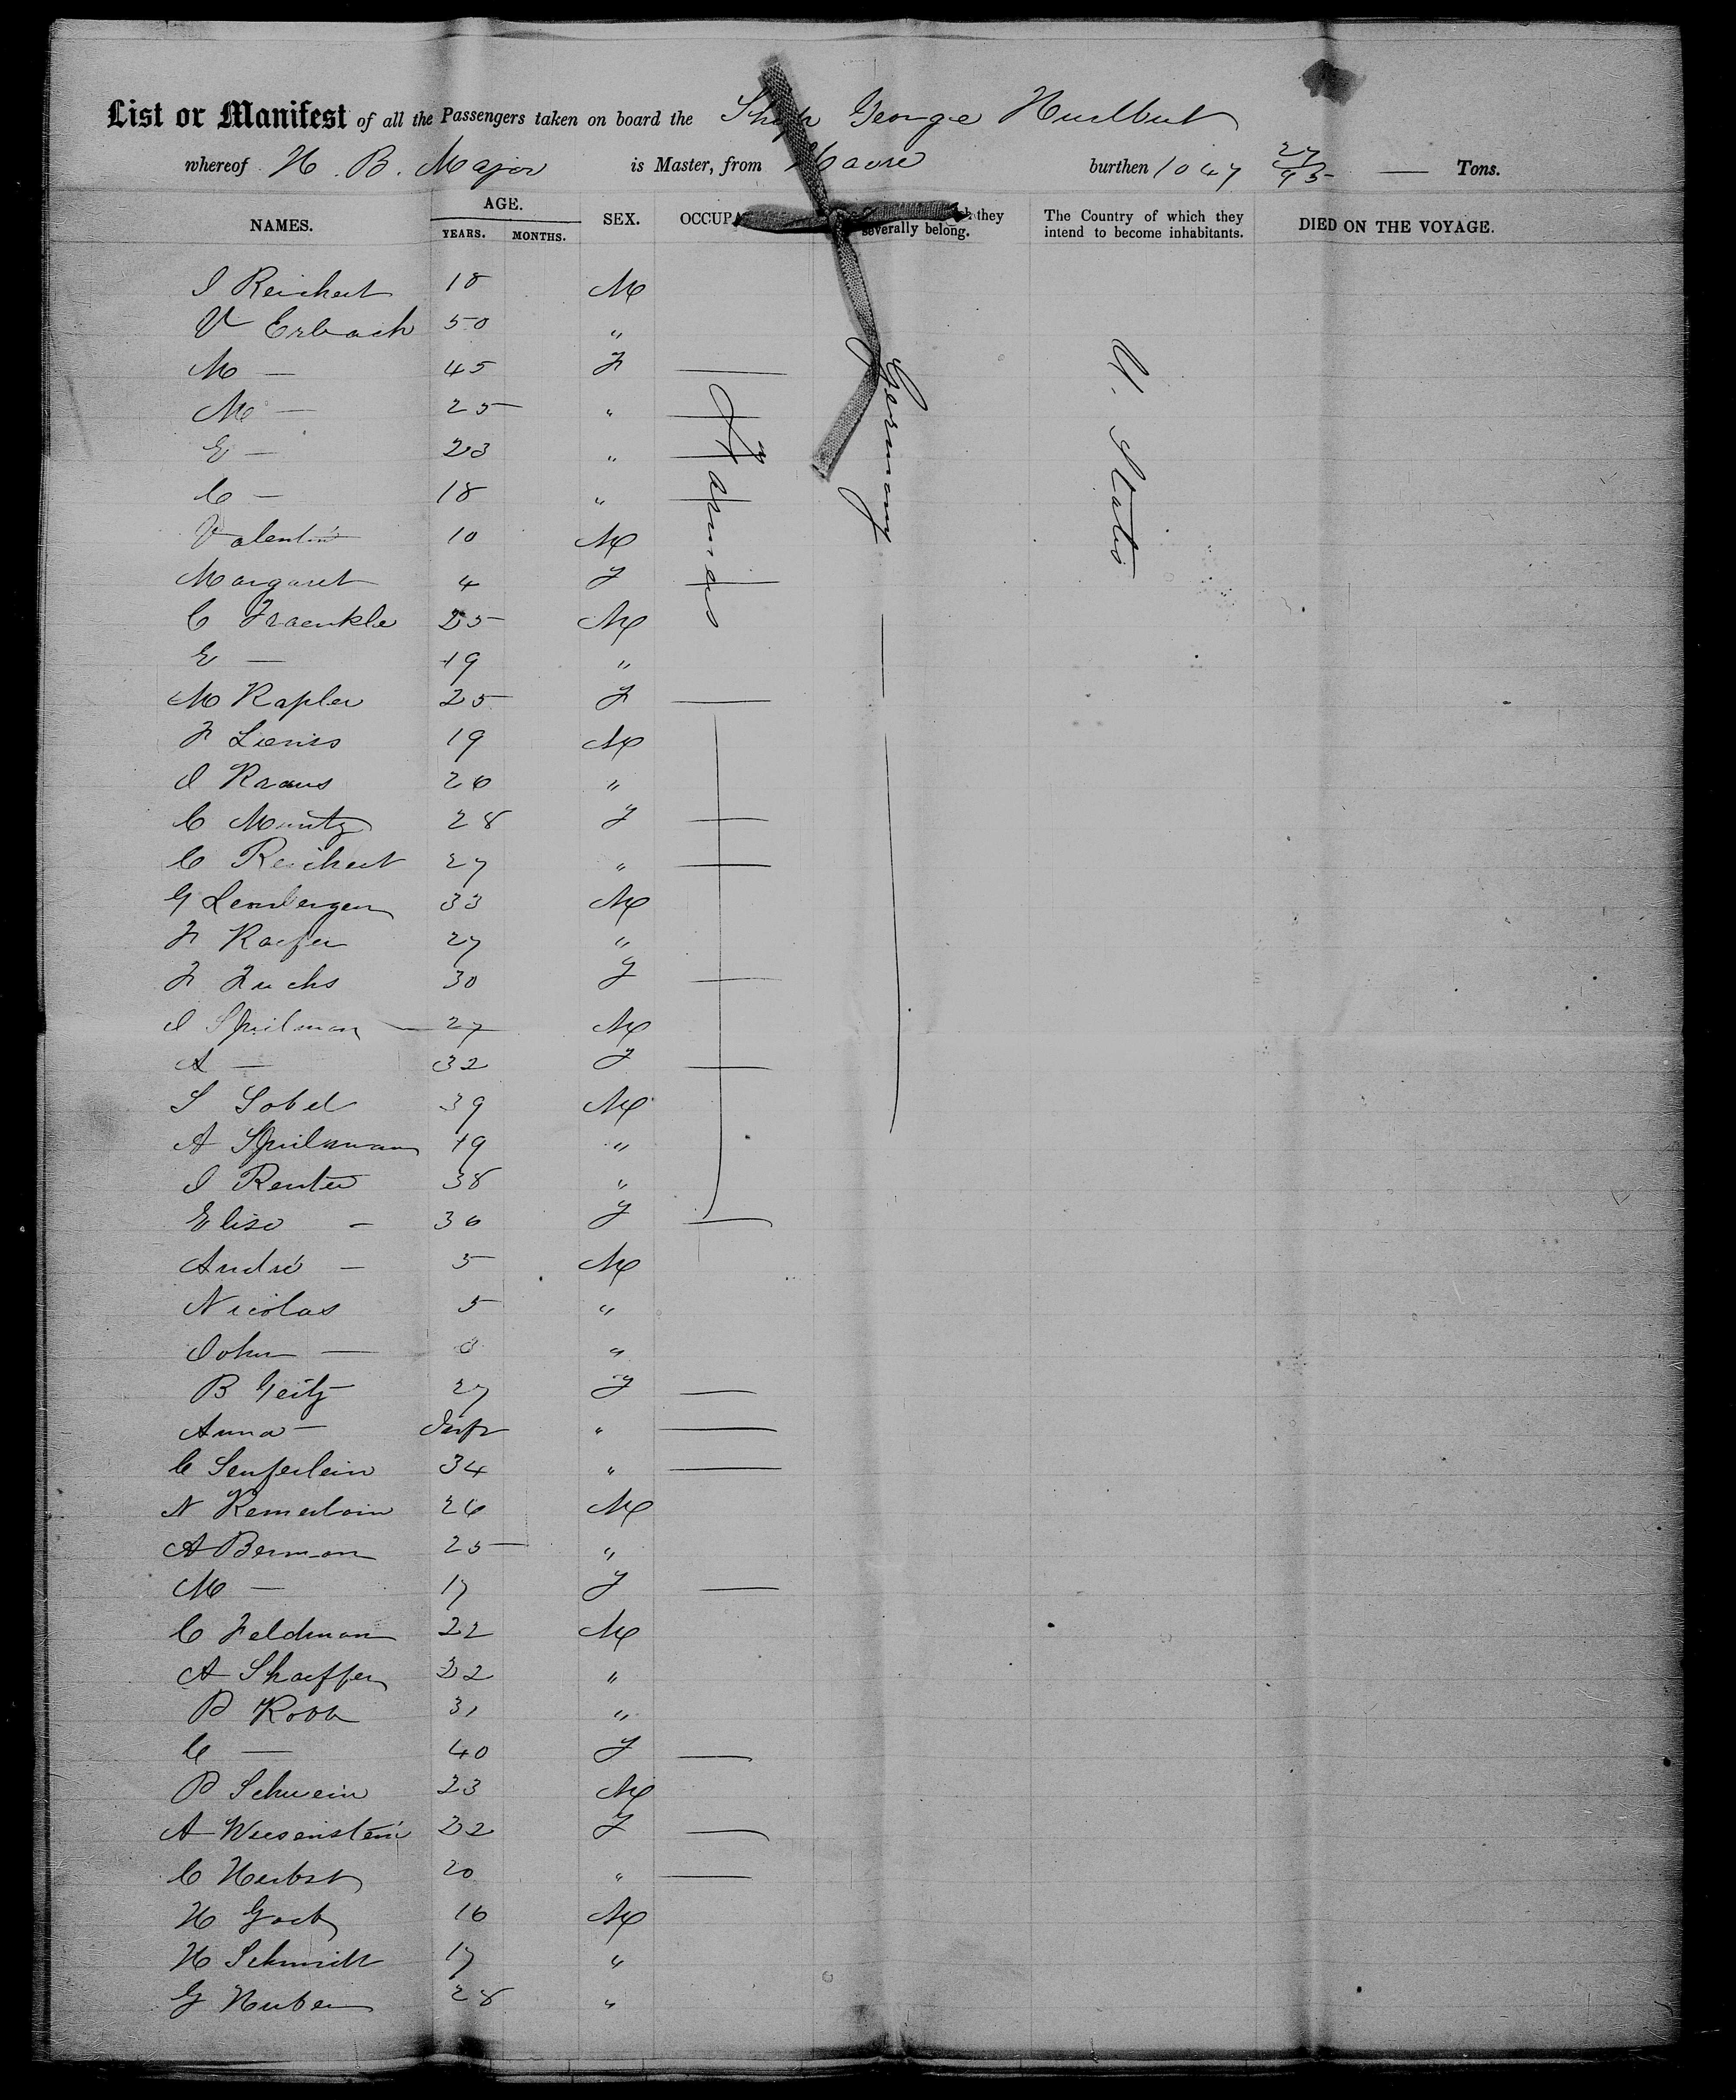 List or Manifest of all the Passengers taken on board the Ship George Hurlbut
whereof H. B. Major is Master, from Havre burthen 1047 27/95 — Tons.
NAMES. AGE. YEARS. MONTHS. SEX. OCCUP they severally belong. The Country of which they intend to become inhabitants. DIED ON THE VOYAGE.
Farmers
Germany
U. States
I Reichert 18 M
V Erbach 50 "
M — 45 F —
M — 25 " —
E — 23 " —
C — 18 " —
Valentin 10 M
Margaret 4 F —
C Fraenkle 25 M
E — 19 "
M Kapler 25 F —
F 19 M
I Kraus 26 "
C Muntz 28 F —
C Reichert 27 " —
G Lemberger 33 M
F Kaefer 27 "
F Fuchs 30 F —
I Spielman 27 M
A — 32 F —
S Sobel 39 M
A Spielman 19 "
I Renter 38 "
Elise — 36 F —
André — 5 M
Nicolas 5 "
John — "
B Geitz 27 F —
Anna — Inft " —
C Senferlein 34 " —
N 26 M
A Berman 25 "
M — 17 F —
C Feldman 22 M
A Shaeffer 22 "
P Kobb 31 "
C — 40 F —
P Schwein 23 M
A Wiesenstein 32 F —
C Herbst 20 " —
H 16 M
H Schmidt 17 "
G Huber 28 "